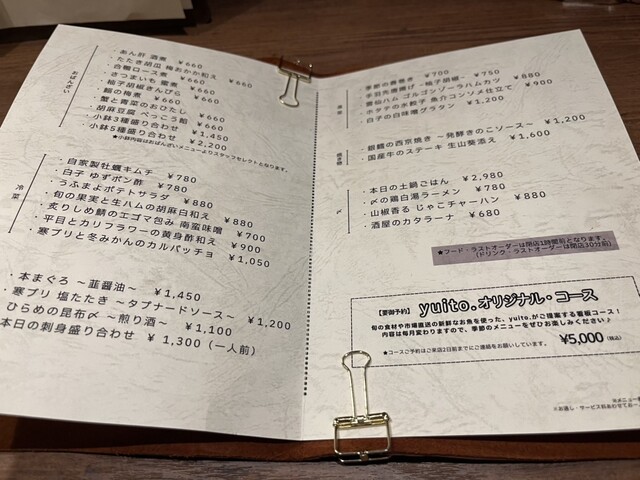 おばんざい
・あん肝 酒煮 ￥660
・たたき胡瓜 梅おかか和え ￥660
・合鴨ロース煮 ￥660
・さつまいも 蜜煮 ￥660
・柚子胡椒きんぴら ￥660
・鰯の梅煮 ￥660
・蟹と青菜のおひたし ￥660
・胡麻豆腐 べっこう餡 ￥660
・小鉢3種盛り合わせ ￥1,450
・小鉢5種盛り合わせ ￥2,200
★小鉢内容はおばんざいメニューよりスタッフセレクトとなります。
冷菜
・自家製牡蠣キムチ ￥780
・白子 ゆずポン酢 ￥780
・うふまよポテトサラダ ￥880
・旬の果実と生ハムの胡麻白和え ￥880
・炙りしめ鯖のエゴマ包み 南蛮味噌 ￥700
・平目とカリフラワーの黄身酢和え ￥900
・寒ブリと冬みかんのカルパッチョ ￥1,050
・本まぐろ ～韮醤油～ ￥1,450
・寒ブリ 塩たたき ～タプナードソース～ ￥1,200
ひらめの昆布〆 ～煎り酒～ ￥1,100
本日の刺身盛り合わせ ￥1,300（一人前）
・季節の春巻き ￥700
・手羽先唐揚げ ～柚子胡椒～ ￥750
・雲仙ハム ゴルゴンゾーラハムカツ ￥880
・ホタテの水餃子 魚介コンソメ仕立て ￥900
・白子の白味噌グラタン ￥1,200
・銀鱈の西京焼き ～発酵きのこソース～ ￥1,200
・国産牛のステーキ 生山葵添え ￥1,600
〆
・本日の土鍋ごはん ￥2,980
・〆の鶏白湯ラーメン ￥780
・山椒香る じゃこチャーハン ￥880
・酒屋のカタラーナ ￥680
★フード・ラストオーダーは閉店1時間前となります。
（ドリンク・ラストオーダーは閉店30分前）
【要御予約】 yuito.オリジナル・コース
旬の食材や市場直送の新鮮なお魚を使った、yuito.がご提案する看板コース！
内容は毎月変わりますので、季節のメニューをぜひお楽しみください♪
★コースご予約はご来店2日前までにご連絡をお願いしています。
￥5,000（税込）